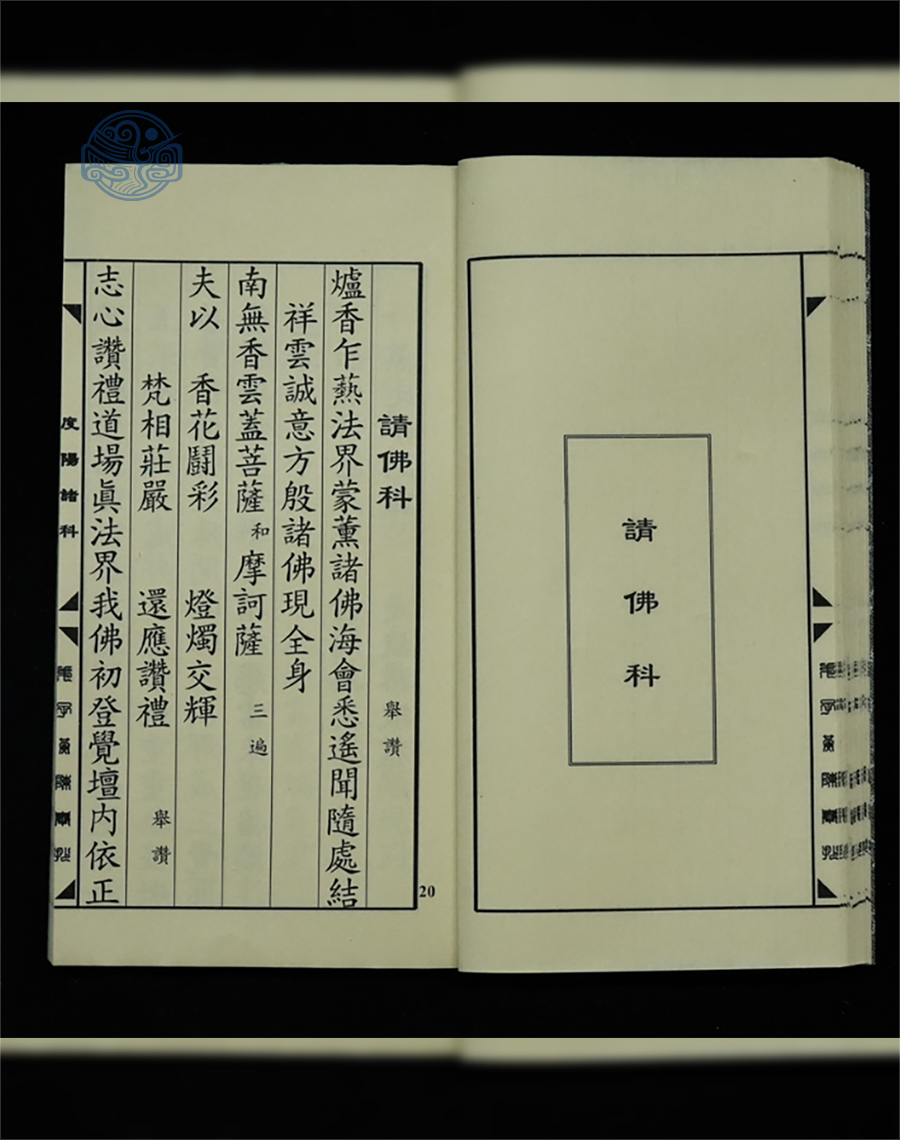 請佛科
請佛科
舉讚
爐香乍爇法界蒙薰諸佛海會悉遙聞隨處結
祥雲誠意方殷諸佛現全身
南無香雲蓋菩薩 和 摩訶薩 三遍
夫以 香花鬪彩 燈燭交輝
梵相莊嚴 還應讚禮 舉讚
志心讚禮道場眞法界我佛初登覺壇内依正
度陽諸科
20